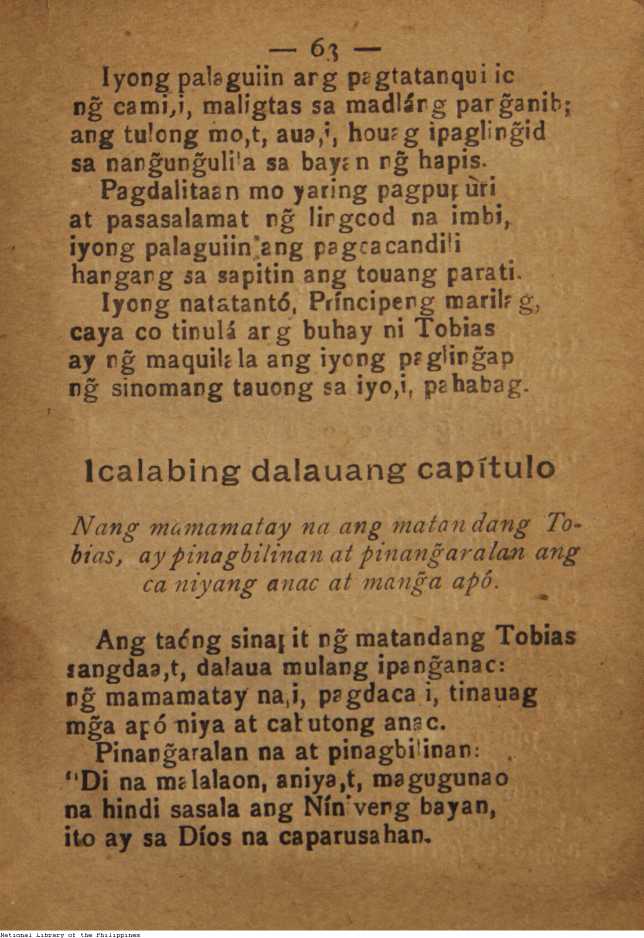 — 63 —
Iyong palaguiin ang pagtatanquilic
ng̃ cami,i, maligtas sa madláng parg̃anib;
ang tulong mo,t, aua,i, houag ipagling̃id
sa nang̃ung̃ulila sa bayan ng̃ hapis.
Pagdalitaan mo yaring pagpupùri
at pasasalamat ng̃ lingcod na imbi,
iyong palaguiin ang pagcacandili
hangang sa sapitin ang touang parati.
Iyong natatantó, Príncipeng marilag,
caya co tinulá ang buhay ni Tobias
ay ng̃ maquilala ang iyong pagling̃ap
ng̃ sinomang tauong sa iyo,i, pahabag.
Icalabing dalauang capítulo
Nang mamamatay na ang matandang To-
bias, ay pinagbilinan at pinang̃aralan ang
ca niyang anac at mang̃a apó.
Ang taóng sinapit ng̃ matandang Tobias
sangdaa,t, dalaua mulang ipang̃anac:
ng̃ mamamatay na,i, pagdaca i, tinauag
mg̃a apó niya at cabutong anac.
Pinang̃aralan na at pinagbilinan:
“Di na malalaon, aniya,t, magugunao
na hindi sasala ang Níniveng bayan,
ito ay sa Díos na caparusahan.
National Library of the Philippines